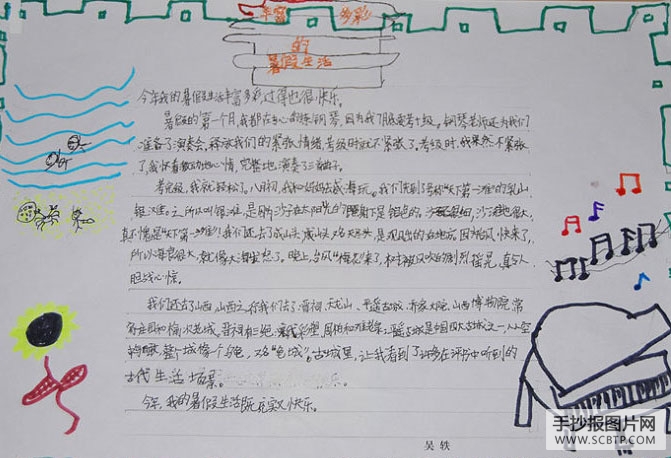 丰富多彩
的
暑假生活
今年我的暑假生活丰富多彩,过得也很快乐。
暑假的第一个月,我都在专心的练钢琴,因为我7月底要考十级。钢琴老师还为我们
准备了演奏会,释放我们的紧张情绪,考级时就不紧张了。考级时,我果然不紧张
了,我怀着激动地心情,完整地演奏了三首曲子。
考完级,我就轻松了。八月初,我和妈妈去威海玩。我们先到了号称“天下第一滩”的乳山
银滩。之所以叫银滩,是因沙子在太阳光的照耀下是银色的,沙子很细,沙滩也很大,
真不愧是“天下第一滩”!我们还去了成山头,成山头,又名天尽头,是观日出的好地方。因台风快来了,
所以海浪很大,就像大海发怒了。晚上,台风“梅花”来了,树被风吹的剧烈摇晃,真令人
胆战心惊。
我们还去了山西,山西之行我们去了晋祠、天龙山、平遥古城、乔家大院、山西博物院、常
家庄园和榆次老城。晋祠有三绝,平遥古城是中国四大古城之一,从空
整个城像个乌龟,又名“龟城”。古城里,让我看到了许多在评书中听到的
古代生活场景。
今年,我的暑假生活既充实又快乐。
吴轶
手抄报图片网
WWW.SCBTP.COM